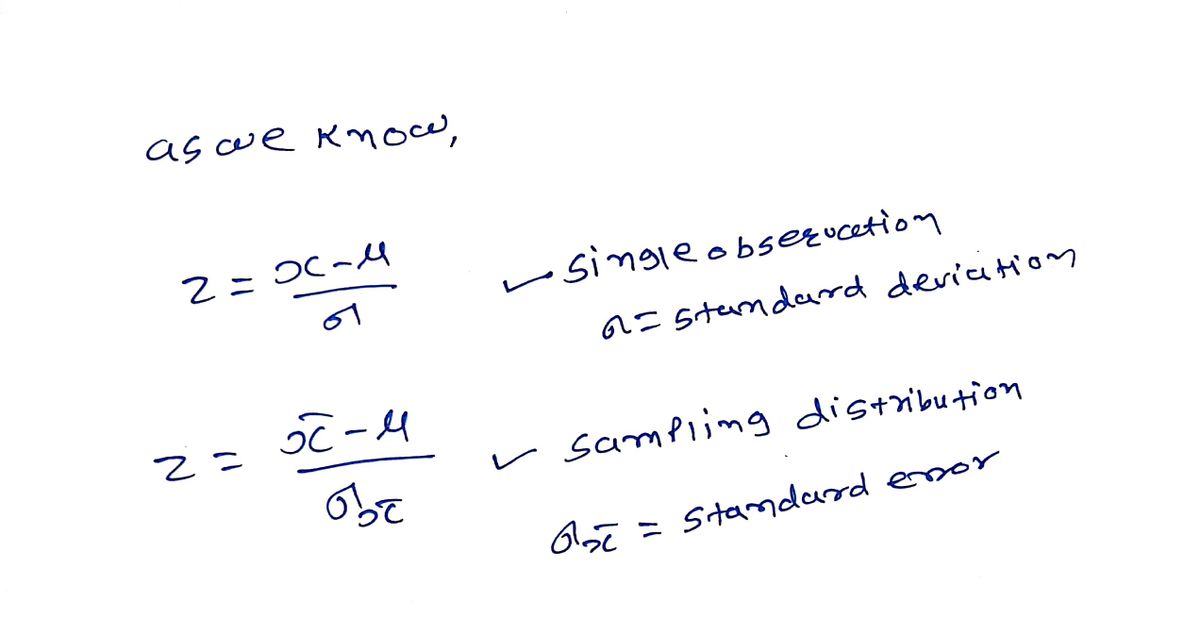 as we know,
z = x - μ / σ ✓ single observation
σ = standard deviation
z = x̄ - μ / σx̄ ✓ sampling distribution
σx̄ = standard error